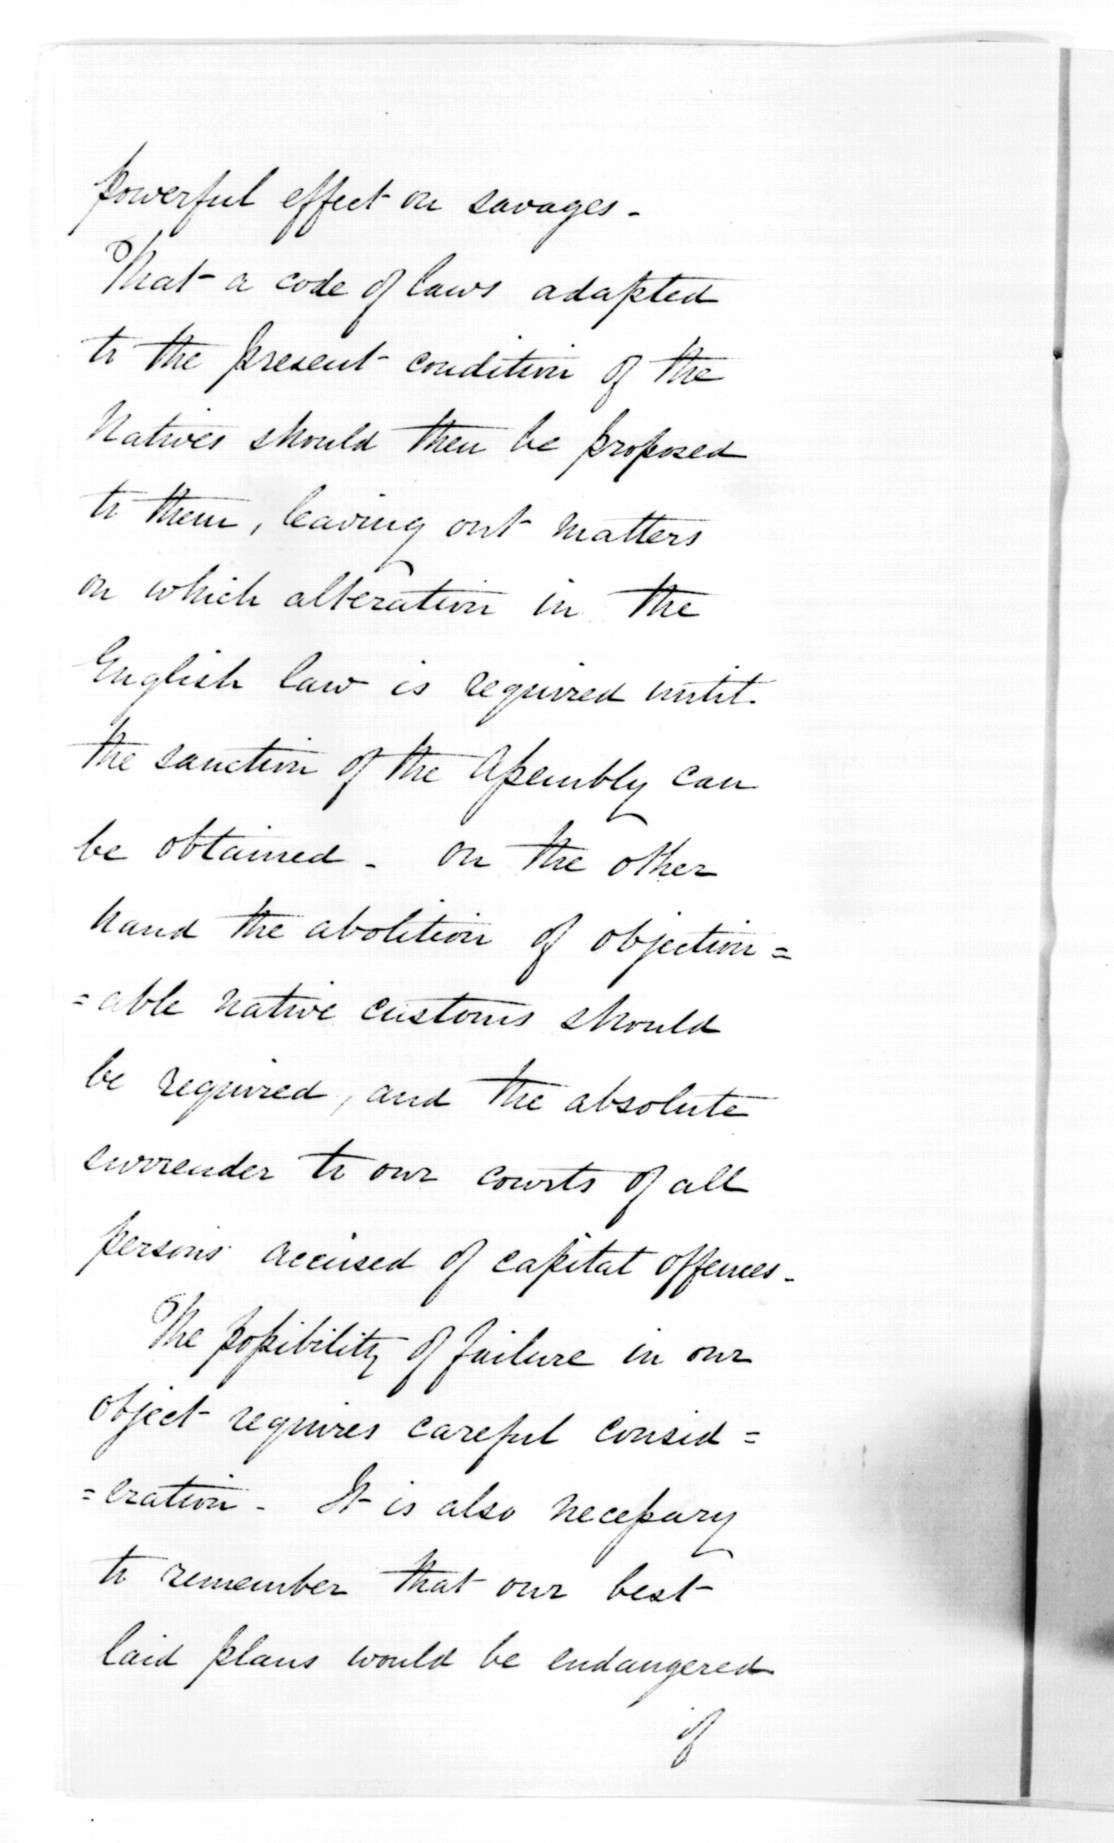 powerful effect on savages -
That a code of laws adapted
to the present condition of the
Natives should then be proposed
to them, leaving out matters
on which alteration in the
English law is required until
the sanction of the Assembly can
be obtained - on the other
hand the abolition of objection =
= able native customs should
be required, and the absolute
surrender to our courts of all
persons accused of capital offences -
The possibility of failure in our
object requires careful consid =
= eration - It is also necessary
to remember that our best
laid plans would be endangered
if